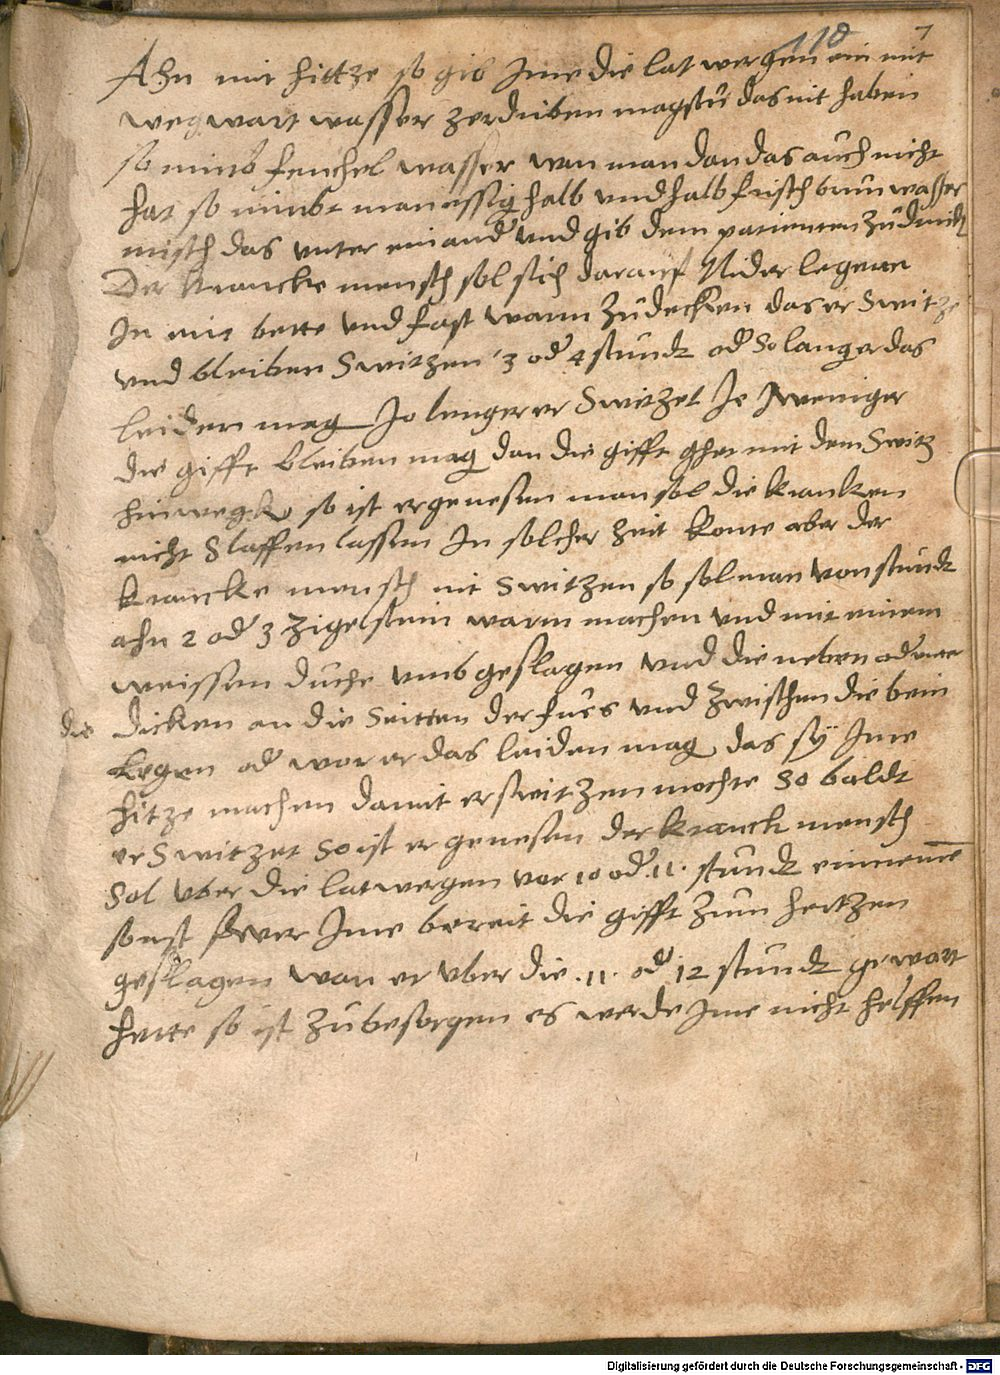 118 7
Ahn mit hittze so gib Jme die latwergen ein mit
wegwart wasser zerdriben magstu das nit haben
so nimb fenchel wasser wan man dan das auch nicht
hat so nimbt man essig halb vnd halb frisch brun wasser
misch das vnter einand vnd gib dem patienten zu drinck
Der krancke mensch sol sich darauf Nider legenn
In ein bette vnd fast warm zudecken das er Switze
vnd bleiben Switzen 3 od 4 stundt od So lang er das
leiden mag Jo lenger er Switzet Je weniger
die gifft bleiben mag dan die gifft ghet mit dem Switz
hinwegk so ist er genesen man sol die kranken
nicht Slaffen lassen In solcher Zeit konte aber der
krancke mensch nit Switzen so sol man von stundt
ahn 2 od 3 Zigelstein warm machen vnd mit einem
weissen duche vmb geslagen vnd die neben od vnter
die dicken an die Seitten der fuss vnd Zwischen die bein
Legen od wor er das leiden mag das sÿ Jme
hitze machen damit er switzen mochte So baldt
er Switzet So ist er genesen der kranck mensch
Sol vber die latwergen vor 10 od .11. stundt einneme
sonst wer Jme bereit die gifft Zum hertzen
geslagen wan er vber die .11. od 12 stundt gewart
hette so ist Zubesorgen es werde Jme nicht helffen
Digitalisierung gefördert durch die Deutsche Forschungsgemeinschaft - DFG